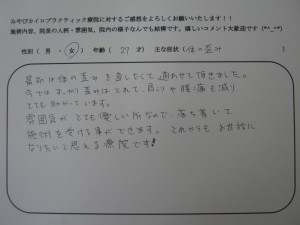 みやびカイロプラクティック療院に対するご感想をよろしくお願いいたします！！
施術内容、院長の人柄・雰囲気、院内の様子なんでも結構です。嬉しいコメント大歓迎です（*^_^*）
性別（ 男 ・ 女 ） 年齢（ 27 才） 主な症状（ 体の歪み
最初は体の歪みを直したくて通わせて頂きました。
今ではすっかり歪みはとれて、肩こりや腰痛も減り
とても助かっています。
雰囲気がとても優しい所なので、落ち着いて
施術を受ける事ができます。これからもお世話に
なりたいと思える療院です!